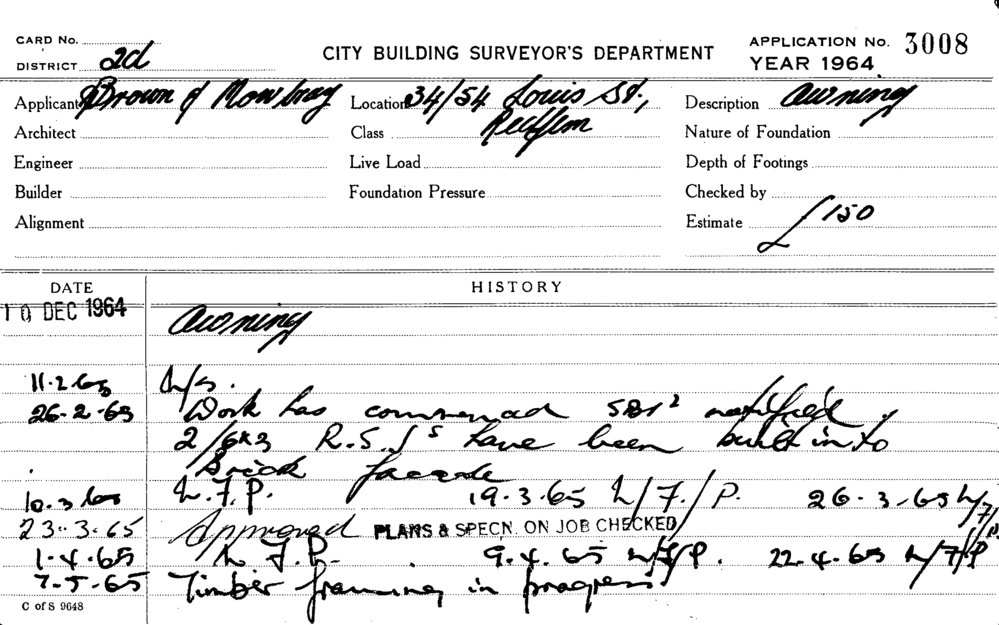 CARD No.
DISTRICT 2d
CITY BUILDING SURVEYOR'S DEPARTMENT
APPLICATION No. 3008
YEAR 1964
Applicant Brown & Mowbray
Location 34/54 Louis St.,
Redfern
Description Awning
Architect
Class
Nature of Foundation
Engineer
Live Load
Depth of Footings
Builder
Foundation Pressure
Checked by
Alignment
Estimate £150
DATE HISTORY
10 DEC 1964 Awning
11.2.65 N/S.
26.2.65 Work has commenced notified.
2/6x3 R.S.Js have been built into
Brick facade
10.3.65 N.F.P. 19.3.65 N/F./P. 26.3.65 N/F/P.
23.3.65 Approved PLANS & SPECN. ON JOB CHECKED
1.4.65 N.F.P. 9.4.65 N/F/P. 22.4.65 N/F/P
7.5.65 Timber framing in progress
C of S 9648